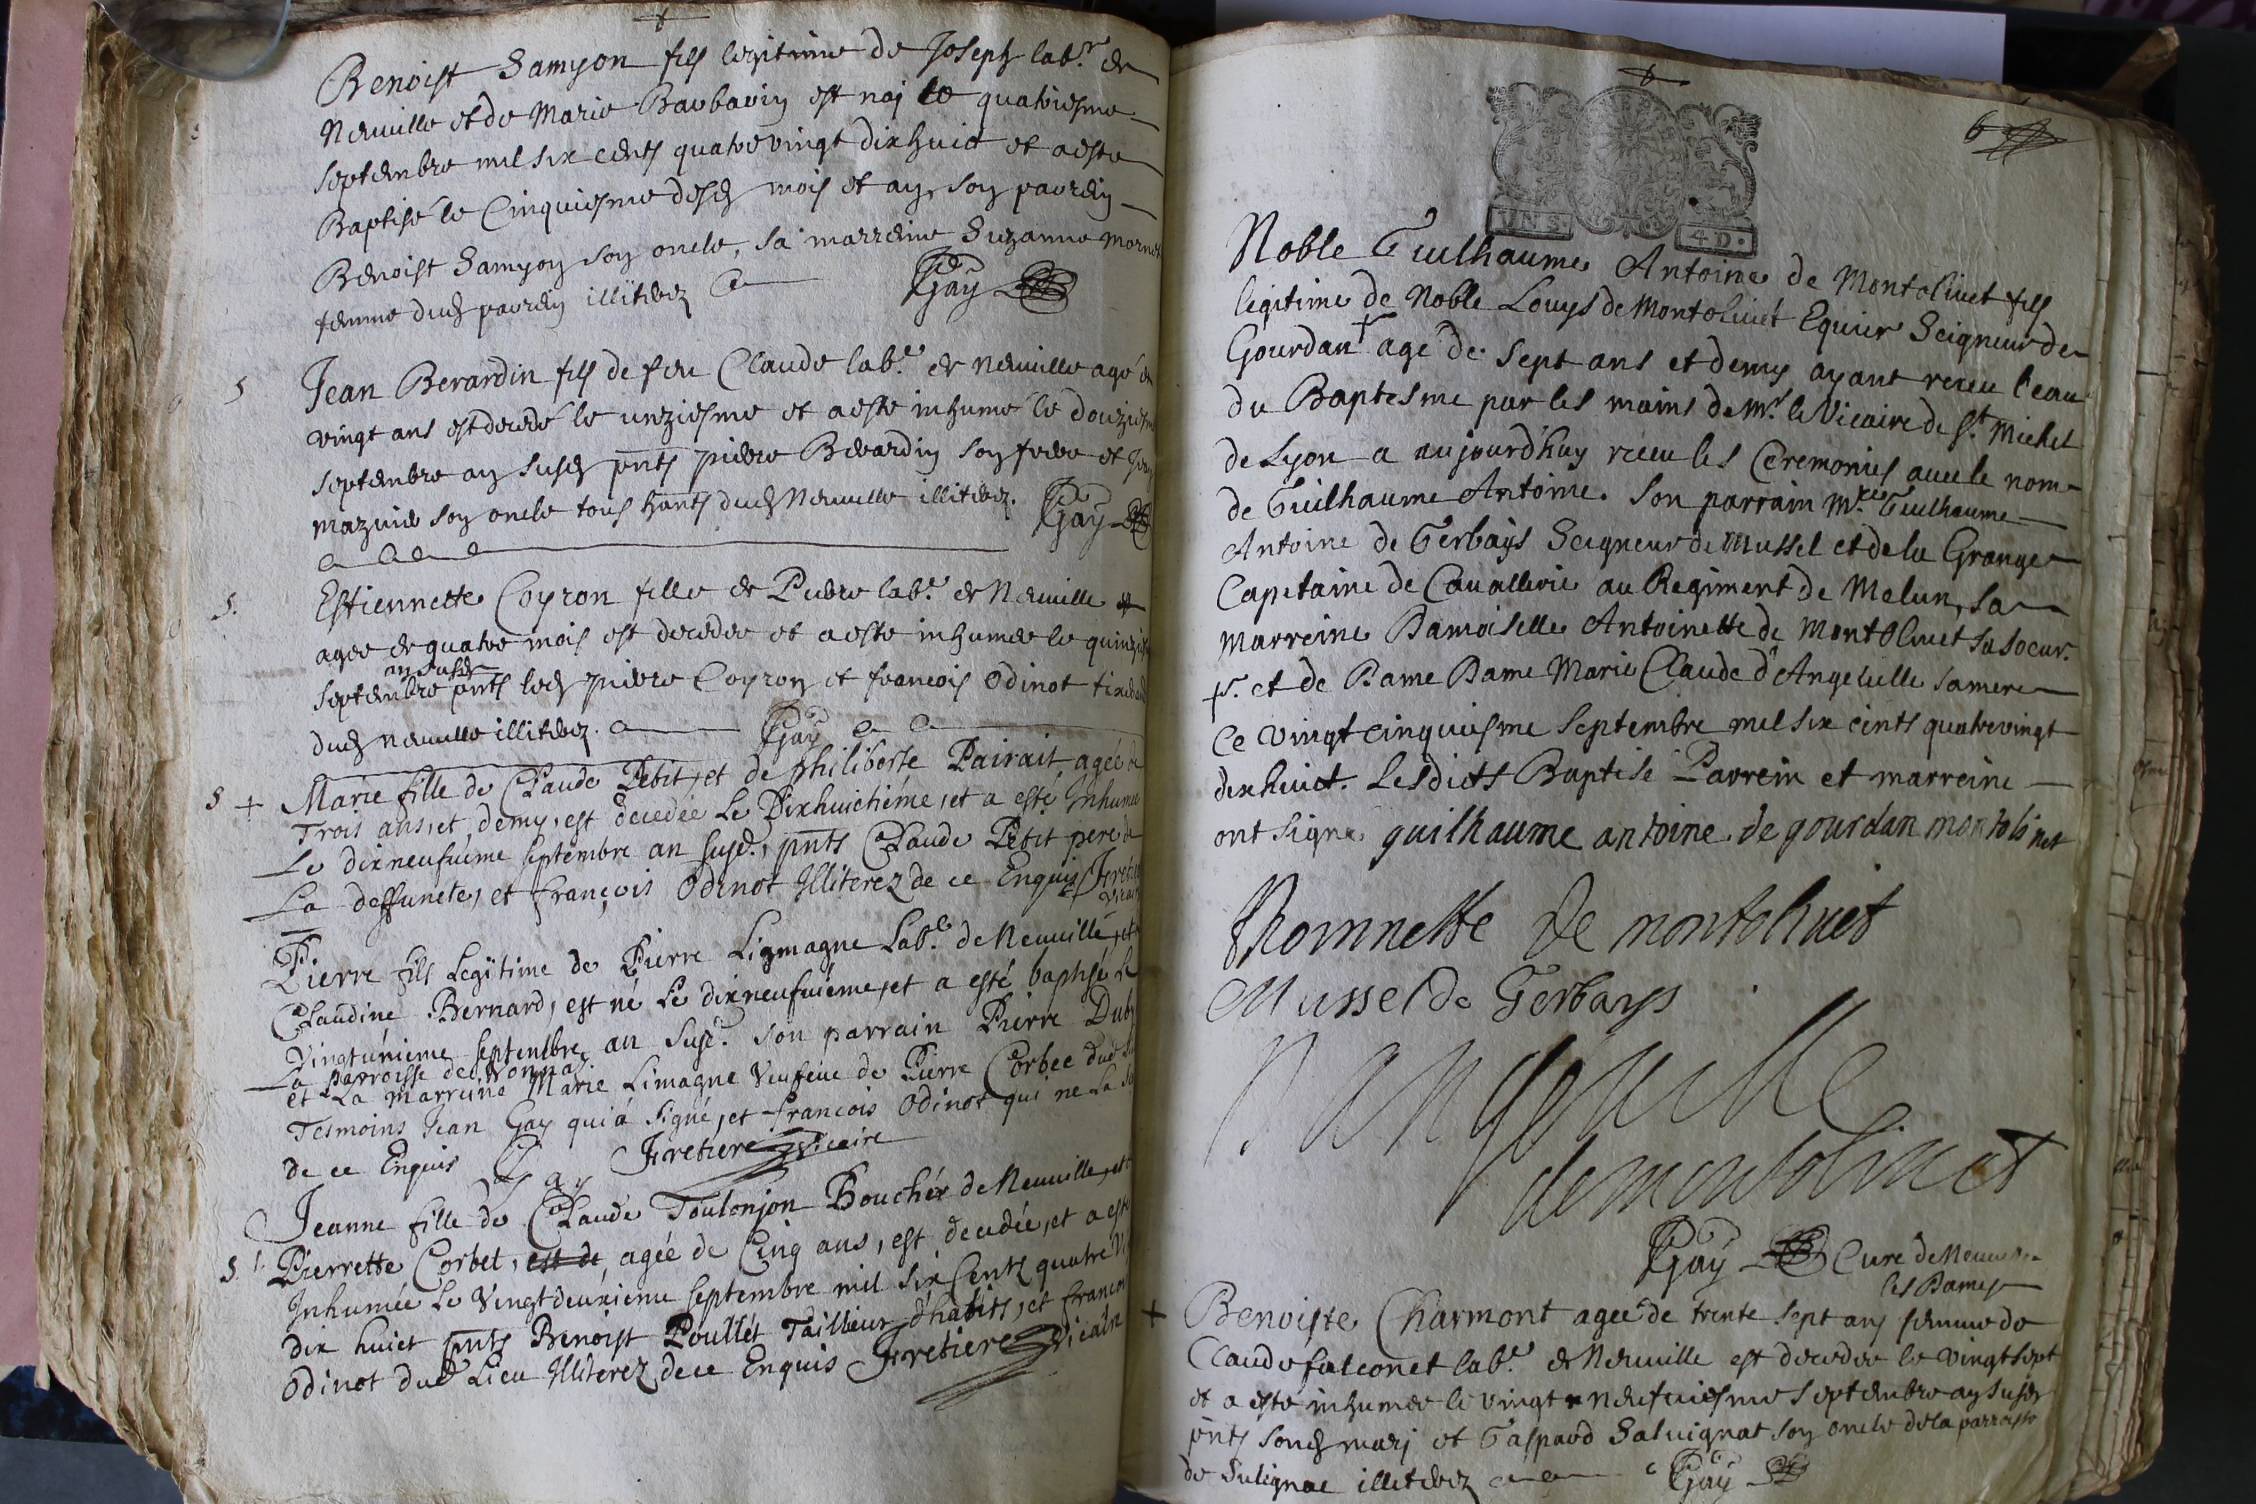 Benoist Samyon fils legitime de Joseph lab.r de
Neuuille et de Marie Barbarin est naj le quatriesme
septembre mil six cents quatre vingt dixhuict et a esté
Baptisé le Cinquiesme desd mois et an, son parrein
Benoist Samyon son oncle, sa marreine Suzanne
femme dud parrein illiterez Gay
5 Jean Berardin fils de feu Claude lab.r de Neuuille agé de
vingt ans est decedé le unziesme et a esté inhumé le douziesme
septembre an susd pnts pierre Berardin son frere et Jean
mazuir son oncle tous hants dud Neuuille illiterez. Gay
5. Estiennette Coyron fille de Pierre lab.r de Neuuille
agee de quatre mois est decedee et a esté inhumee le
an susd
septembre pnts led pierre Coyron et francois Odinot
dud Neuuille illiterez. Gay
5 + Marie fille de Claude Petit, et de philiberte Pairait agée de
Trois ans, et demy, est decedée Le Dixhuictiéme, et a esté Inhumé
Le dixneufuiéme septembre an susd., pnts Claude Petit pere de
La deffuncte, et françois Odinot Illiterez de ce Enquis
Pierre fils Legitime de Pierre Ligmagne Lab.r de Neuuille, et
Claudine Bernard, est né Le dixneufuiéme, et a esté baptisé Le
Vingtuniéme septembre an susd. son parrain Pierre
La parroisse de Vonnas
et La marreine Marie Limagne Veufeue de Pierre Corbet dud
Tesmoins Jean Gay qui a signé, et francois Odinot qui ne La
de ce Enquis Gay Fretiere Vicaire
Jeanne fille de Claude Toulonjon Boucher de Neuuille, et
5. Pierrette Corbet, est de agée de Cinq ans, est decedée, et a esté
Inhumée Le Vingtdeuxiéme septembre mil six Cents quatre
dix huict pnts Benoist Poullet Tailleur d'habits, et francois
Odinot dud Lieu Illiterez de ce Enquis Fretiere Vicaire
6
4 D.
Noble Guilhaume Antoine de Montoliuet fils
legitime de Noble Louys de Montoliuet Equier Seigneur de
Gourdan + agé de sept ans et demy ayant receu l'eau
du Baptesme par les mains de Mr. le Vicaire de St. Michel
de Lyon a aujourd'huy receu les Ceremonies auec le nom
de Guilhaume Antoine. Son parrain Guilhaume
Antoine de Gerbays Seigneur de Mussel et de la Grange
Capitaine de Cauallerie au Regiment de Melun, sa
Marreine Damoiselle Antoinette de Montoliuet sa soeur.
+. et de Dame Dame Marie Claude d'Angeuille sa mere
Ce vingt cinquiesme Septembre mil six cents quatre vingt
dix huict. Lesdicts Baptisé Parrein et marreine
ont signé guilhaume antoine de gourdan montoliuet
de montoliuet
Mussel de Gerbays
d angeuille
de montoliuet
Gay Curé de Neuuille
les Dames
+ Benoiste Charmont agee de trente sept ans femme de
Claude falconet lab.r de Neuuille est decedee le vingt sept
et a esté inhumee le vingt neufuiesme septembre an susd
pnts sond marj et Gaspard Saluignat son oncle de la parroisse
de Sulignac illiterez Gay